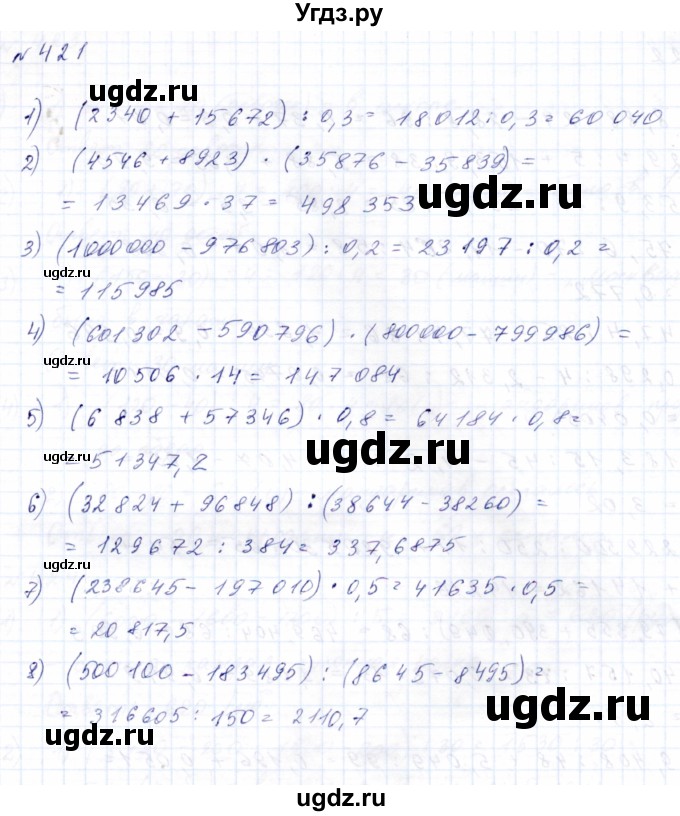 Угдз.ру
№ 421
ugdz.ru
1) (2340 + 15672) : 0,3 = 18012 : 0,3 = 60 040
2) (4546 + 8923) · (35876 - 35839) =
= 13469 · 37 = 498 353
ugdz.ru
3) (1000000 - 976803) : 0,2 = 23197 : 0,2 =
ugdz.ru
= 115985
4) (601302 - 590796) · (800000 - 799986) =
ugdz.ru
ugdz.ru
= 10506 · 14 = 147 084
5) (6 838 + 57346) · 0,8 = 64184 · 0,8 =
ugdz.ru
= 51347,2
6) (32824 + 96848) : (38644 - 38260) =
ugdz.ru
= 129672 : 384 = 337,6875
7) (238645 - 197010) · 0,5 = 41635 · 0,5 =
ugdz.ru
= 20 817,5
8) (500 100 - 183495) : (8645 - 8495) =
= 316605 : 150 = 2110,7
ugdz.ru
ugdz.ru
ugdz.ru